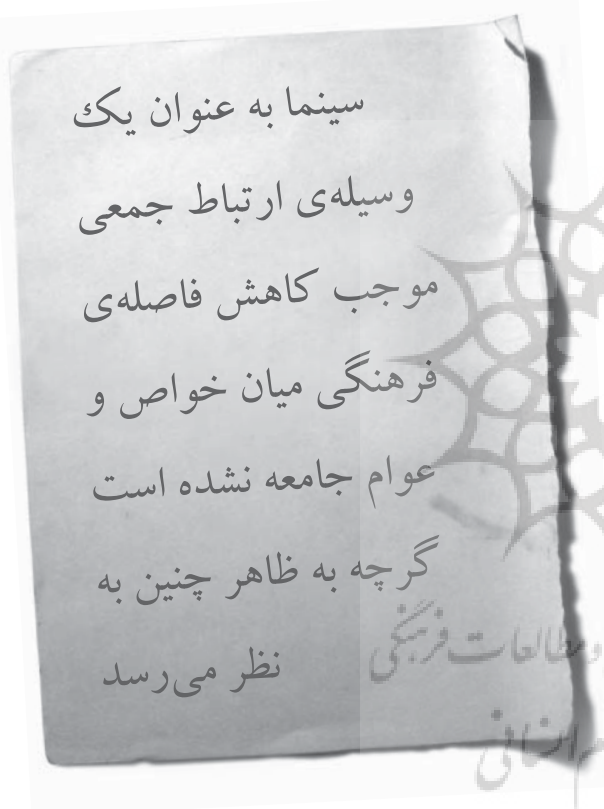 سینما به عنوان یک
وسیله‌ی ارتباط جمعی
موجب کاهش فاصله‌ی
فرهنگی میان خواص و
عوام جامعه نشده است
گرچه به ظاهر چنین به
نظر می‌رسد
و مطالعات فرهنگی